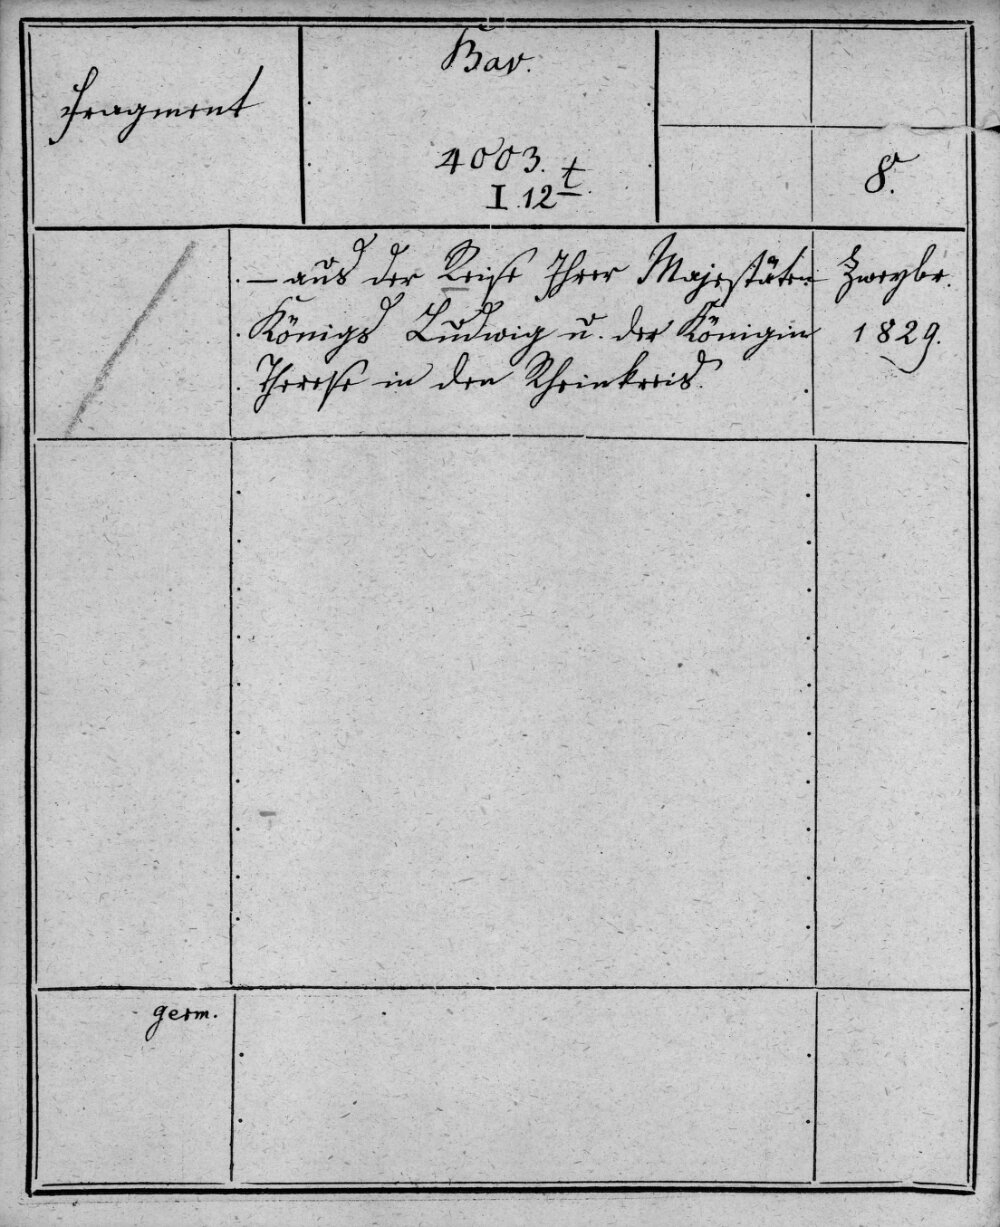 Bav.
Fragment
4003.
I.12 t.
8.
— aus der Reise Ihrer Majestäten
Königs Ludwig u. der Königin
Therese in den Rheinkreis.
Zweybr.
1829.
germ.